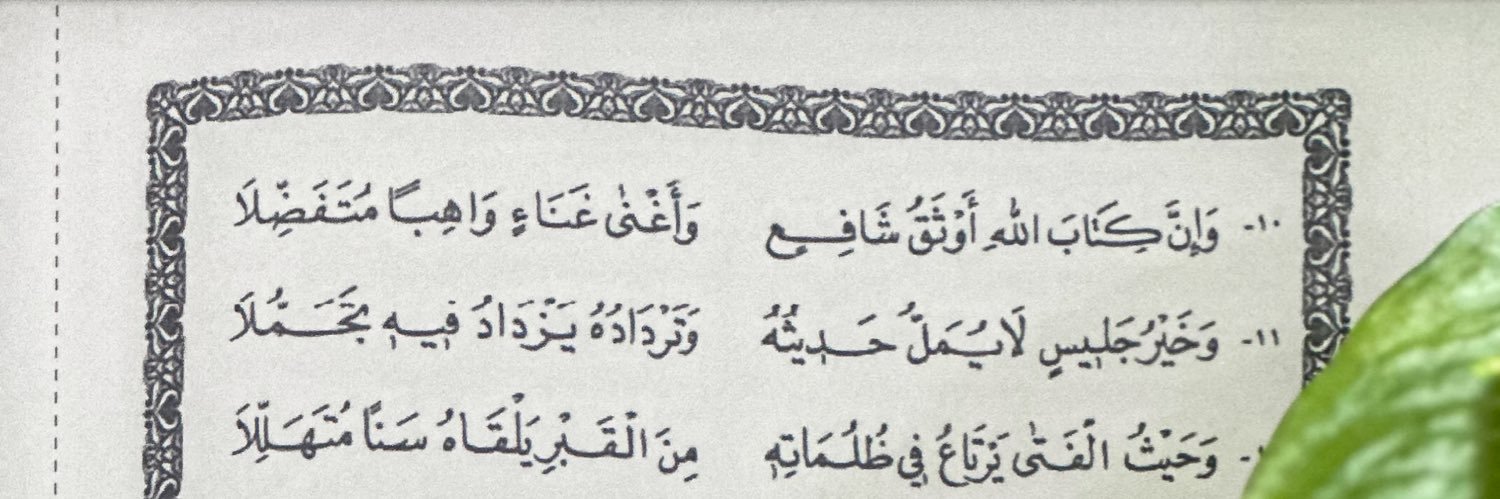 ١٠- وَإِنَّ كِتَابَ اللهِ أَوْثَقُ شَافِعٍ وَأَغْنَىٰ غَنَاءٍ وَاهِبًا مُتَفَضِّلَا
١١- وَخَيْرُ جَلِيسٍ لَا يُمَلُّ حَدِيثُهُ وَتَرْدَادُهُ يَزْدَادُ فِيهِ تَجَمُّلَا
وَحَيْثُ الْفَتَىٰ يَرْتَاعُ فِي ظُلُمَاتِهِ مِنَ الْقَبْرِ يَلْقَاهُ سَنًا مُتَهَلِّلَا